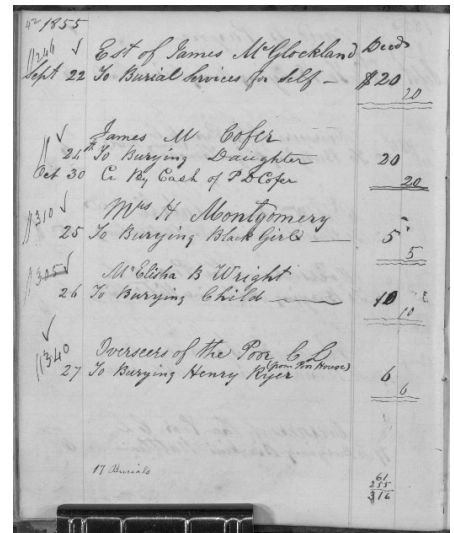 1855
246 Est of James McGlockland Deeds
Sept 22 To Burial Services for Self — $20
20
James M Cofer
24th To Burying Daughter 20
Oct 30 Cr By Cash of P D Cofer 20
310 Mrs H Montgomery
25 To Burying Black Girl — 5
5
305 Mr Elisha B Wright
26 To Burying Child — 10
10
340 Overseers of the Poor C L
27 To Burying Henry Ryer (from Poor House) 6
6
17 Burials
61
255
316